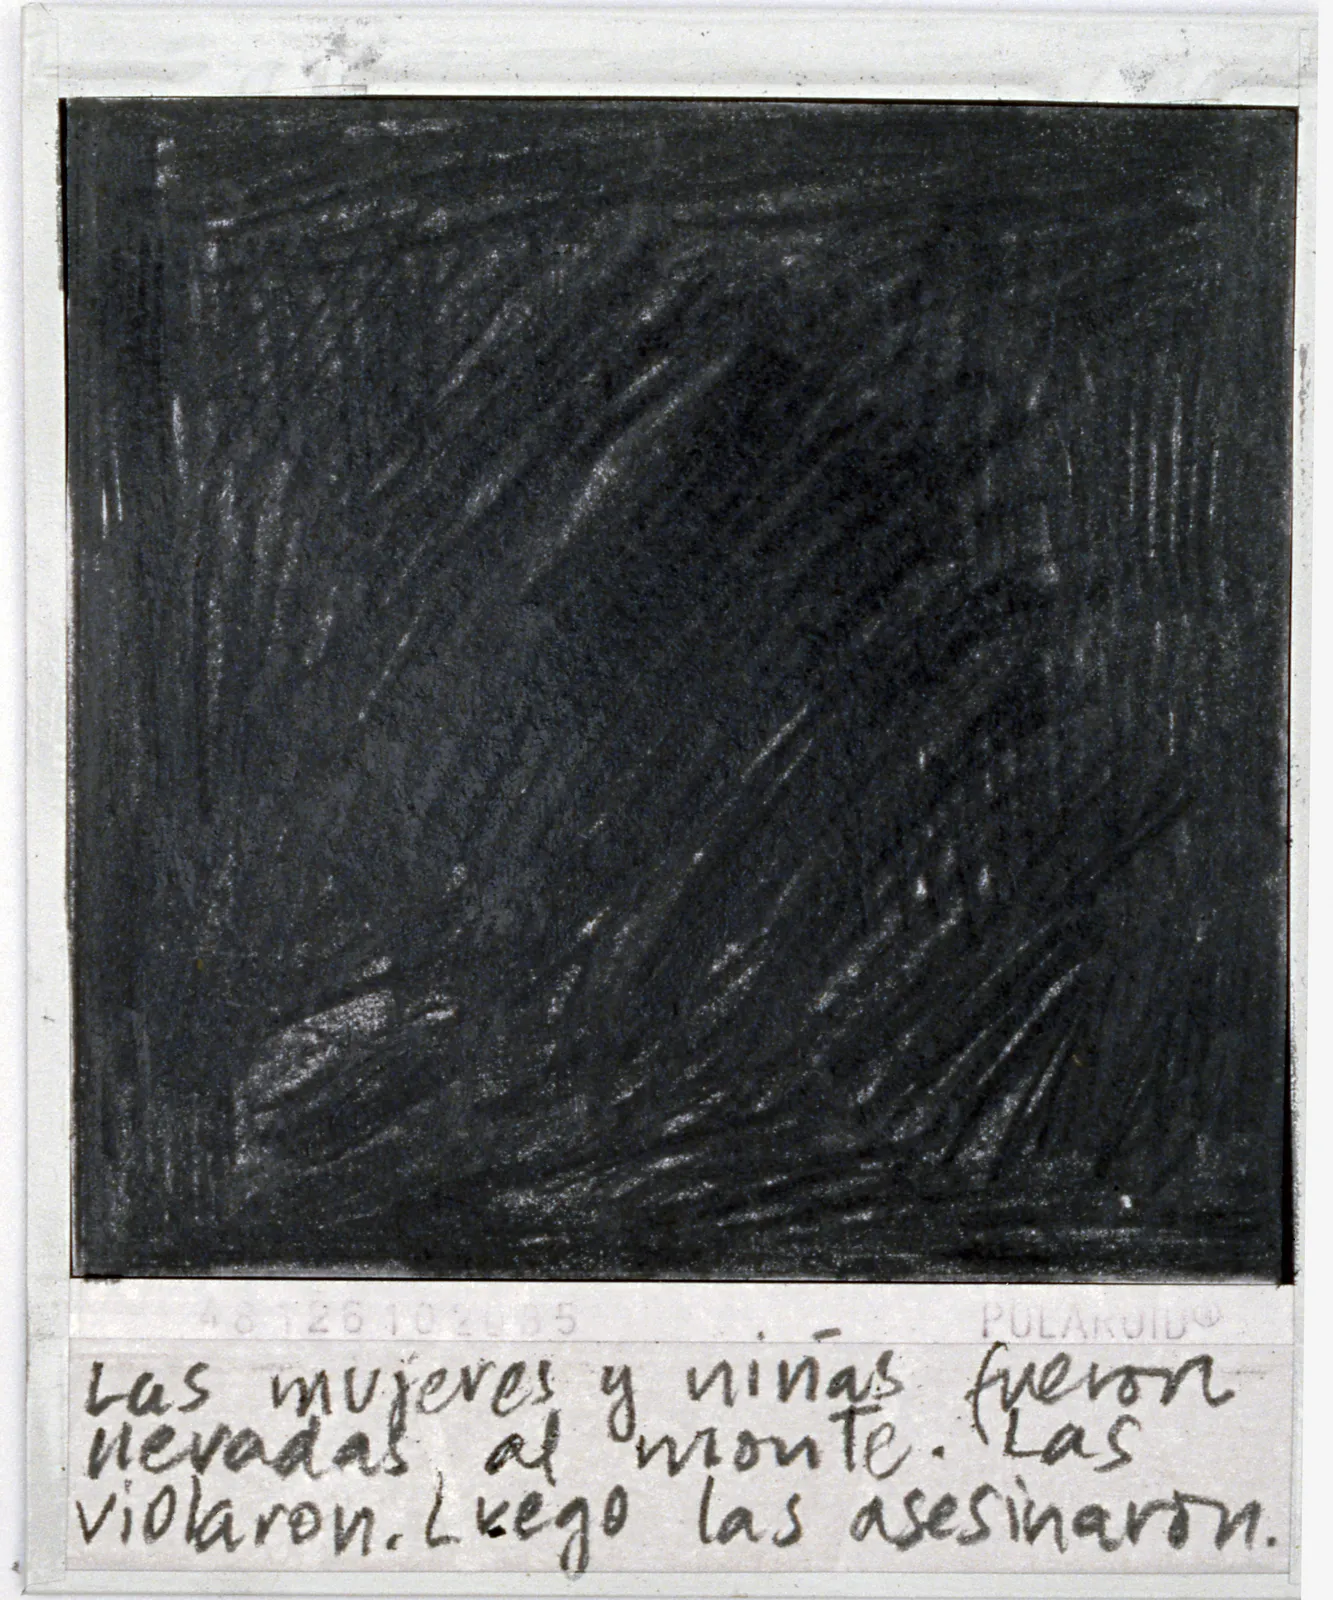 48126102085 POLAROID®
Las mujeres y niñas fueron
llevadas al monte. Las
violaron. Luego las asesinaron.